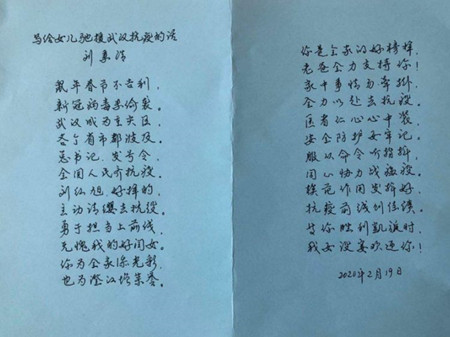 写给女儿驰援武汉抗疫的话
刘
鼠年春节不吉利,
新冠病毒来偷袭。
武汉成为重灾区,
各个省市都波及。
总书记,发号令,
全国人民齐抗疫。
刘仁旭好样的,
主动请缨去抗疫。
勇于担当上前线,
无愧我的好闺女。
你为全家添光彩,
也为潜江增荣誉。
你是全家的好榜样,
老爸全力支持你!
家中事情勿牵挂,
全力以赴去抗疫。
医者仁心心中装,
安全防护要牢记。
服从命令听指挥,
同心协力战病疫。
模范作用发挥好,
抗疫前线创佳绩。
待你胜利凯旋时,
我去设宴欢迎你!
2020年2月19日